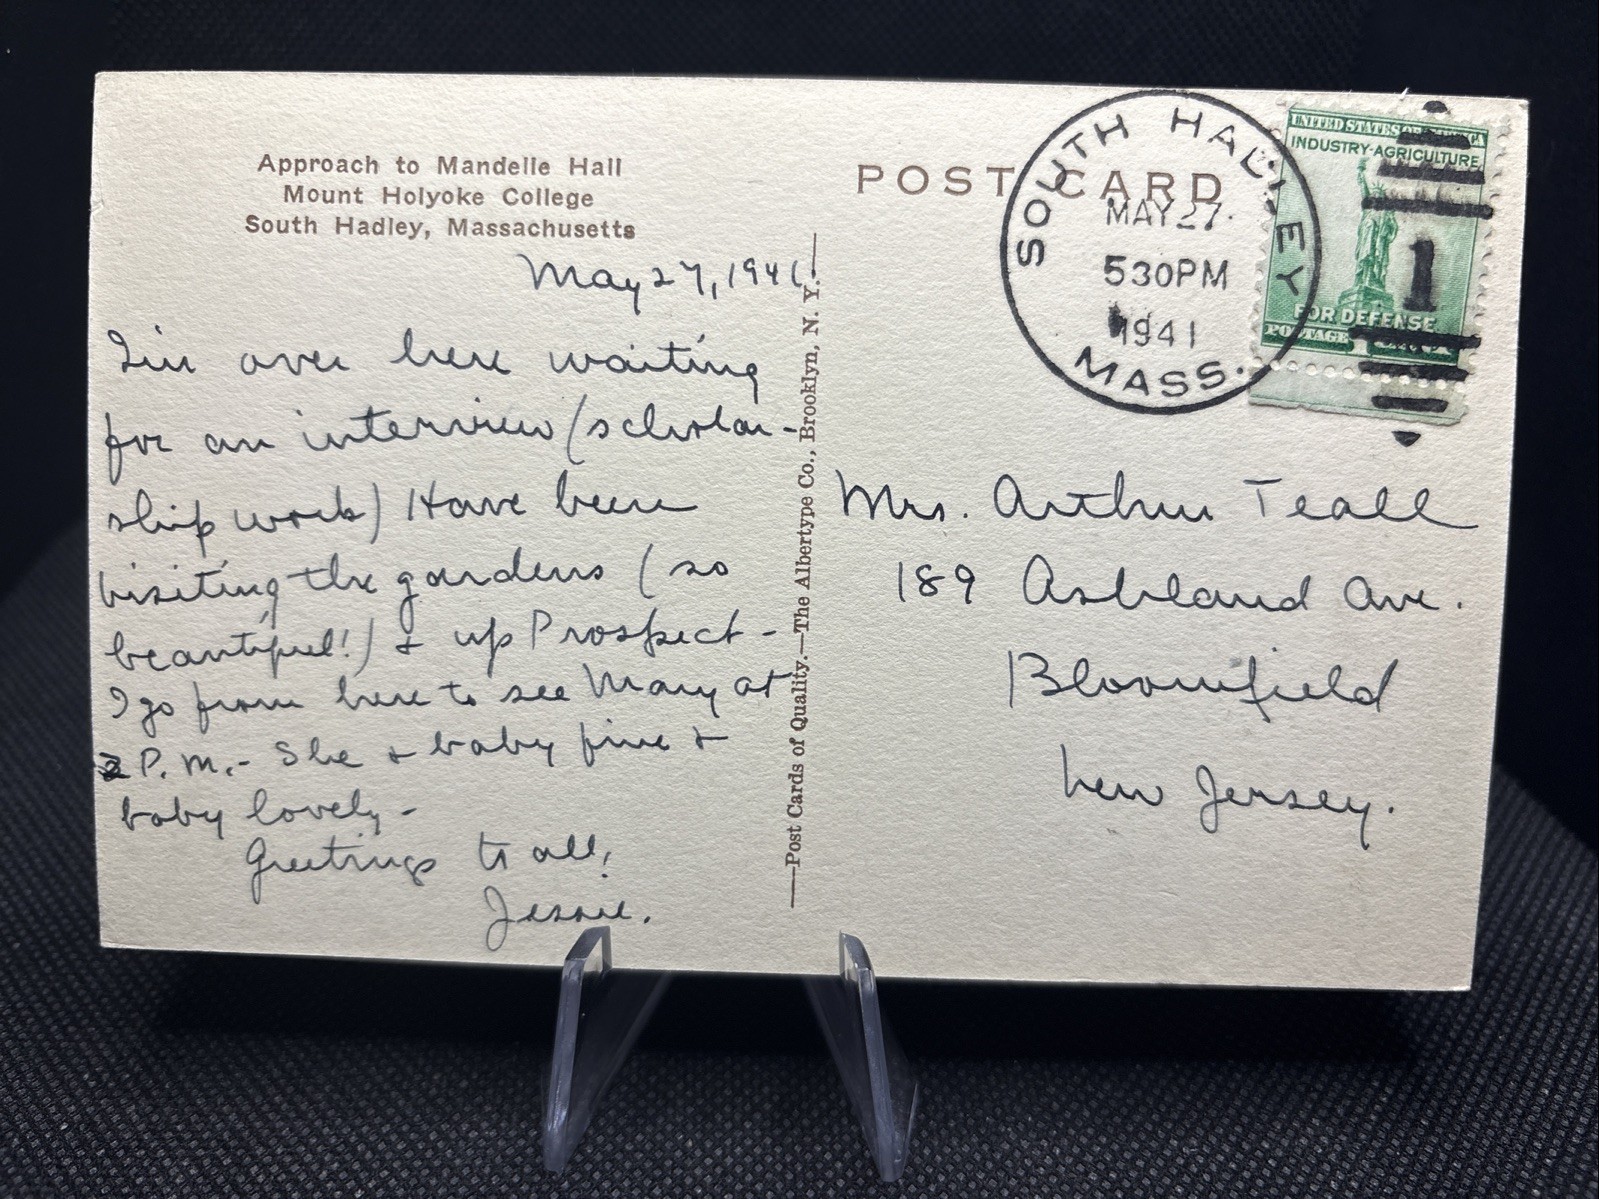 Approach to Mandelle Hall
Mount Holyoke College
South Hadley, Massachusetts
May 27, 1941.
I'm over here waiting
for an interview (scholar-
ship work) Have been
visiting the gardens (so
beautiful!) & up Prospect -
I go from here to see Mary at
2 P.M. - She & baby fine &
baby lovely -
Greetings to all,
Jessie.
—Post Cards of Quality.—The Albertype Co., Brooklyn, N. Y.—
POST CARD
SOUTH HADLEY
MAY 27
530PM
1941
MASS.
UNITED STATES OF AMERICA
INDUSTRY-AGRICULTURE
1
FOR DEFENSE
POSTAGE 1 CENT
Mrs. Arthur Teall
189 Ashland Ave.
Bloomfield
New Jersey.